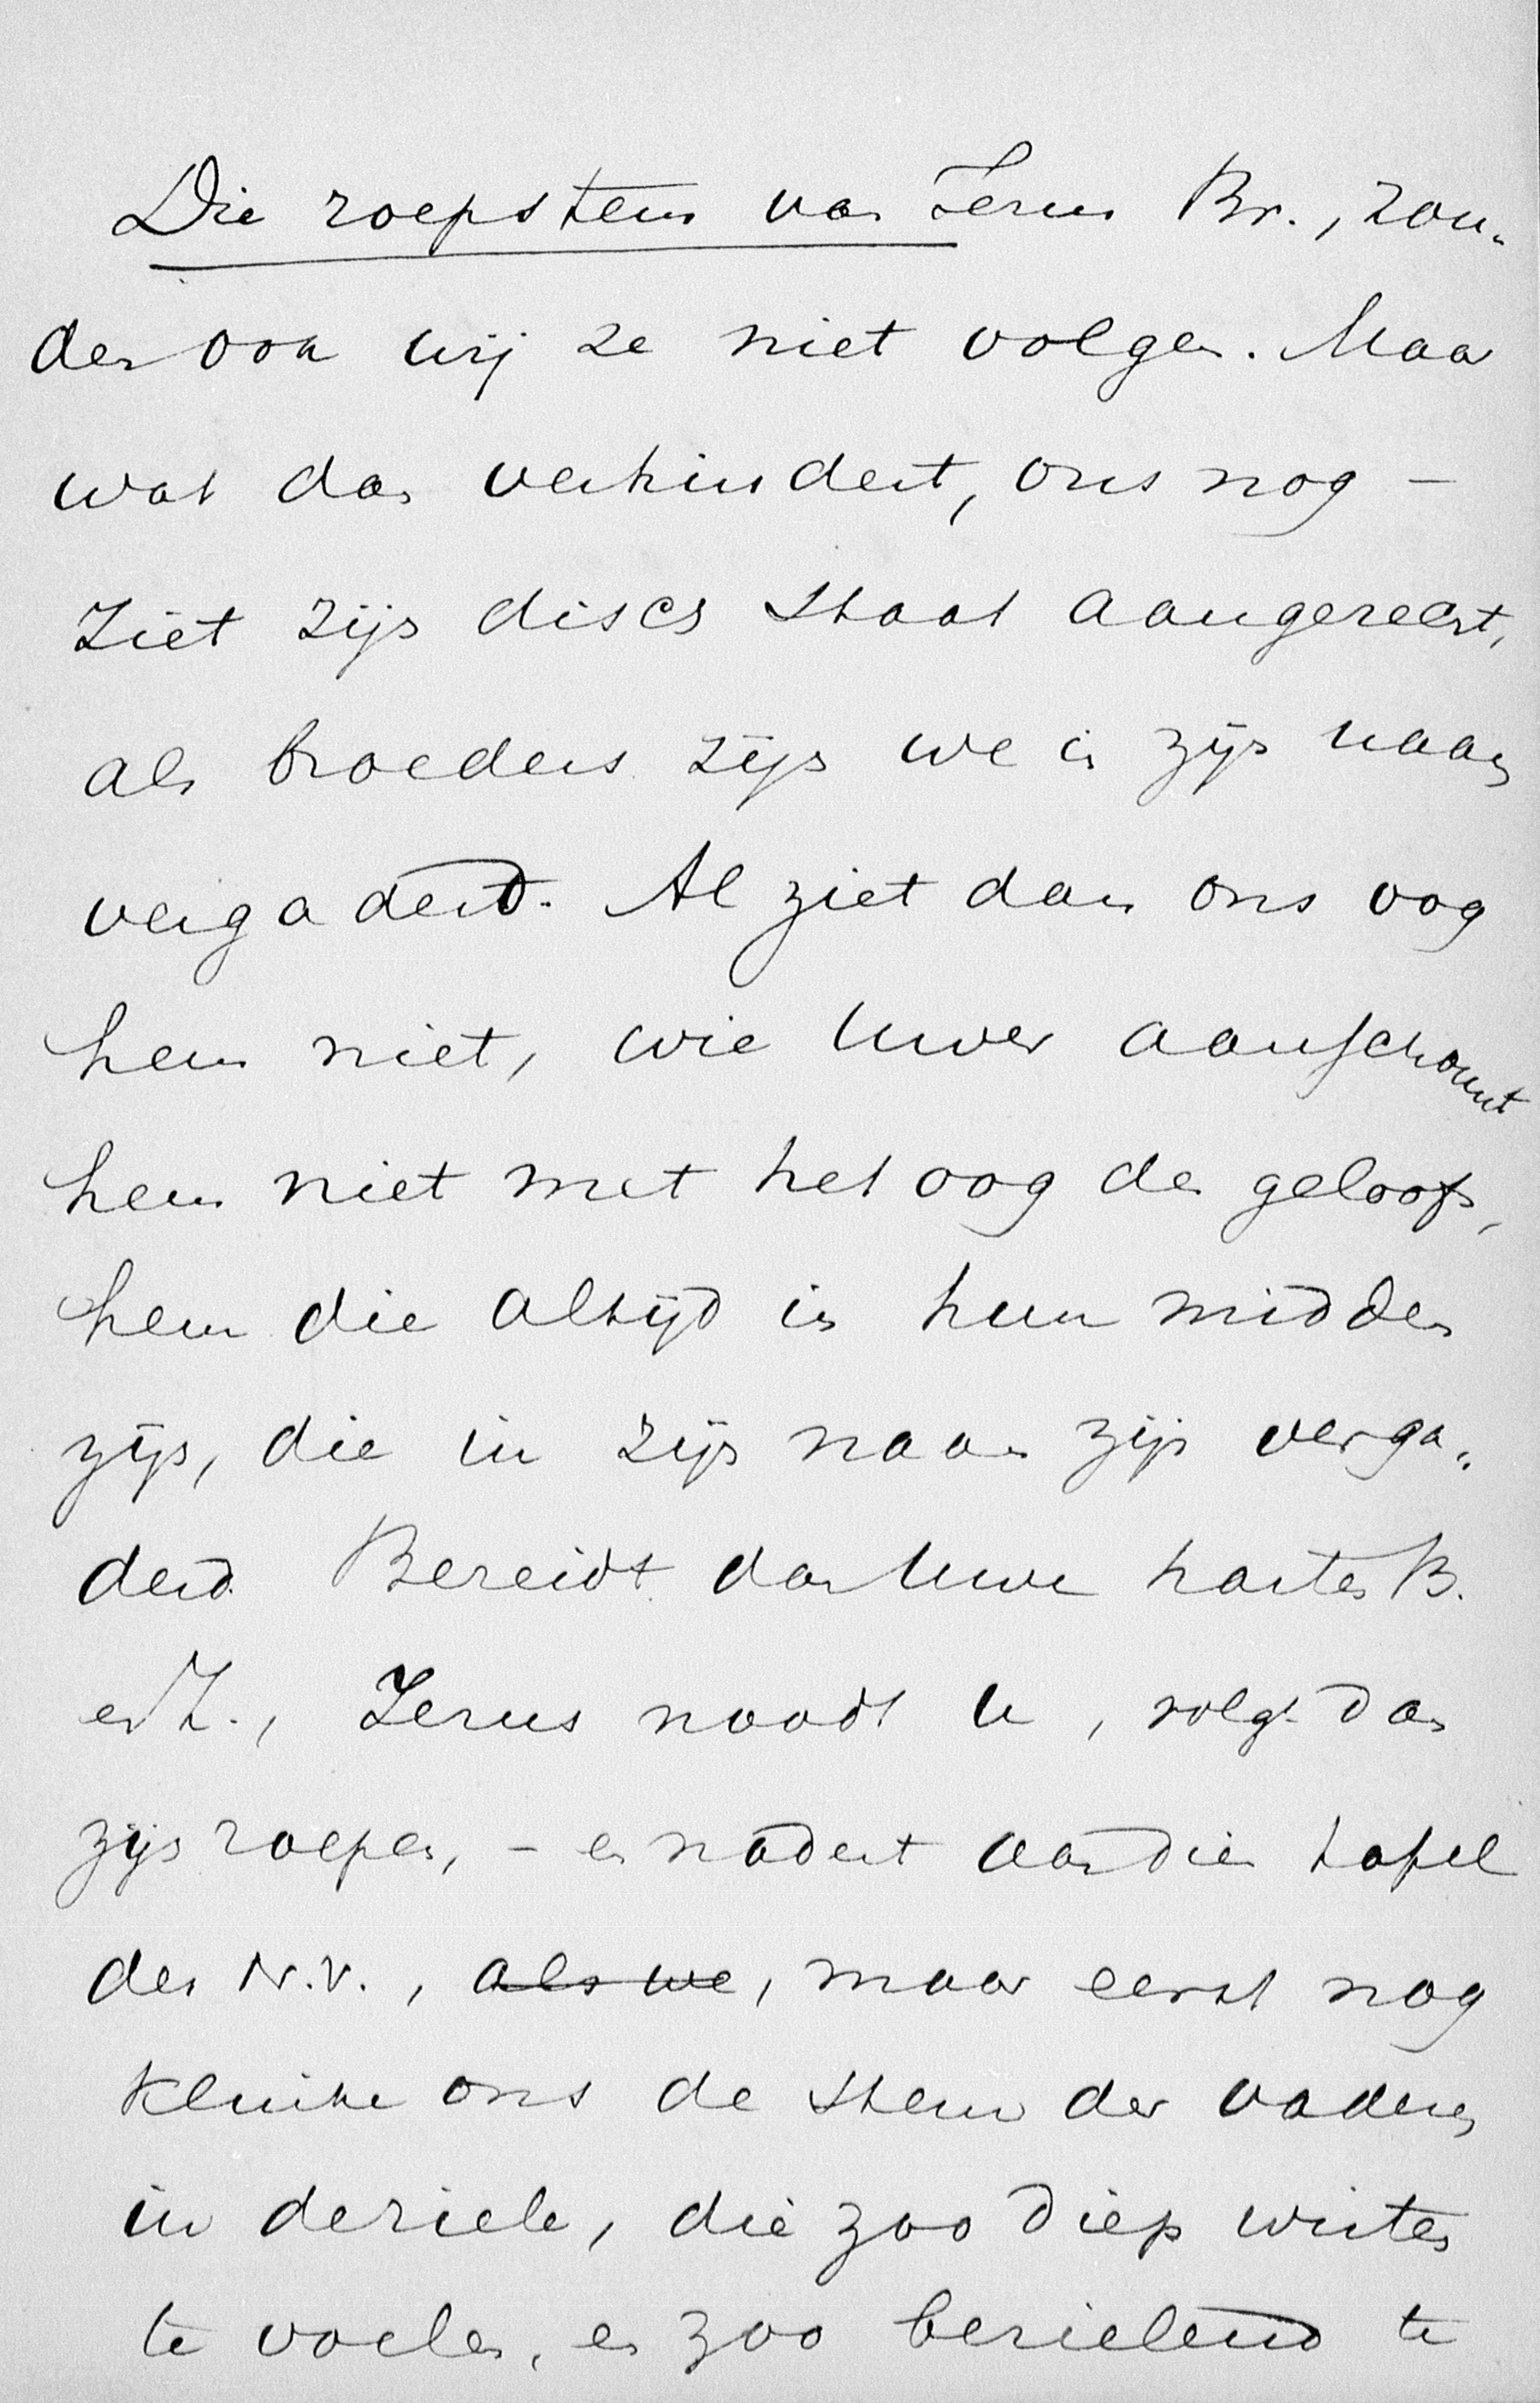 Die roepstem van Jezus Br., zou-
den ook wij ze niet volgen. Maar
wat dan verhindert, ons nog –
ziet zijn disch staat aangerecht,
als broeders zijn we in zijn naam
vergaderd. Al ziet dan ons oog
hem niet, wie Uwer aanschouwt
hem niet met het oog des geloofs,
hem die altijd in hun midden
zijn, die in zijn naam zijn verga-
derd Bereidt dan Uwe harten B.
en Z., Jezus noodt U, volgt dan
zijn roepen, – en nadert aan dien tafel
des N.V., als we, maar eerst nog
klinke ons de stem der vaderen
in de ziele, die zoo diep wisten
te voelen, en zoo bezielend te